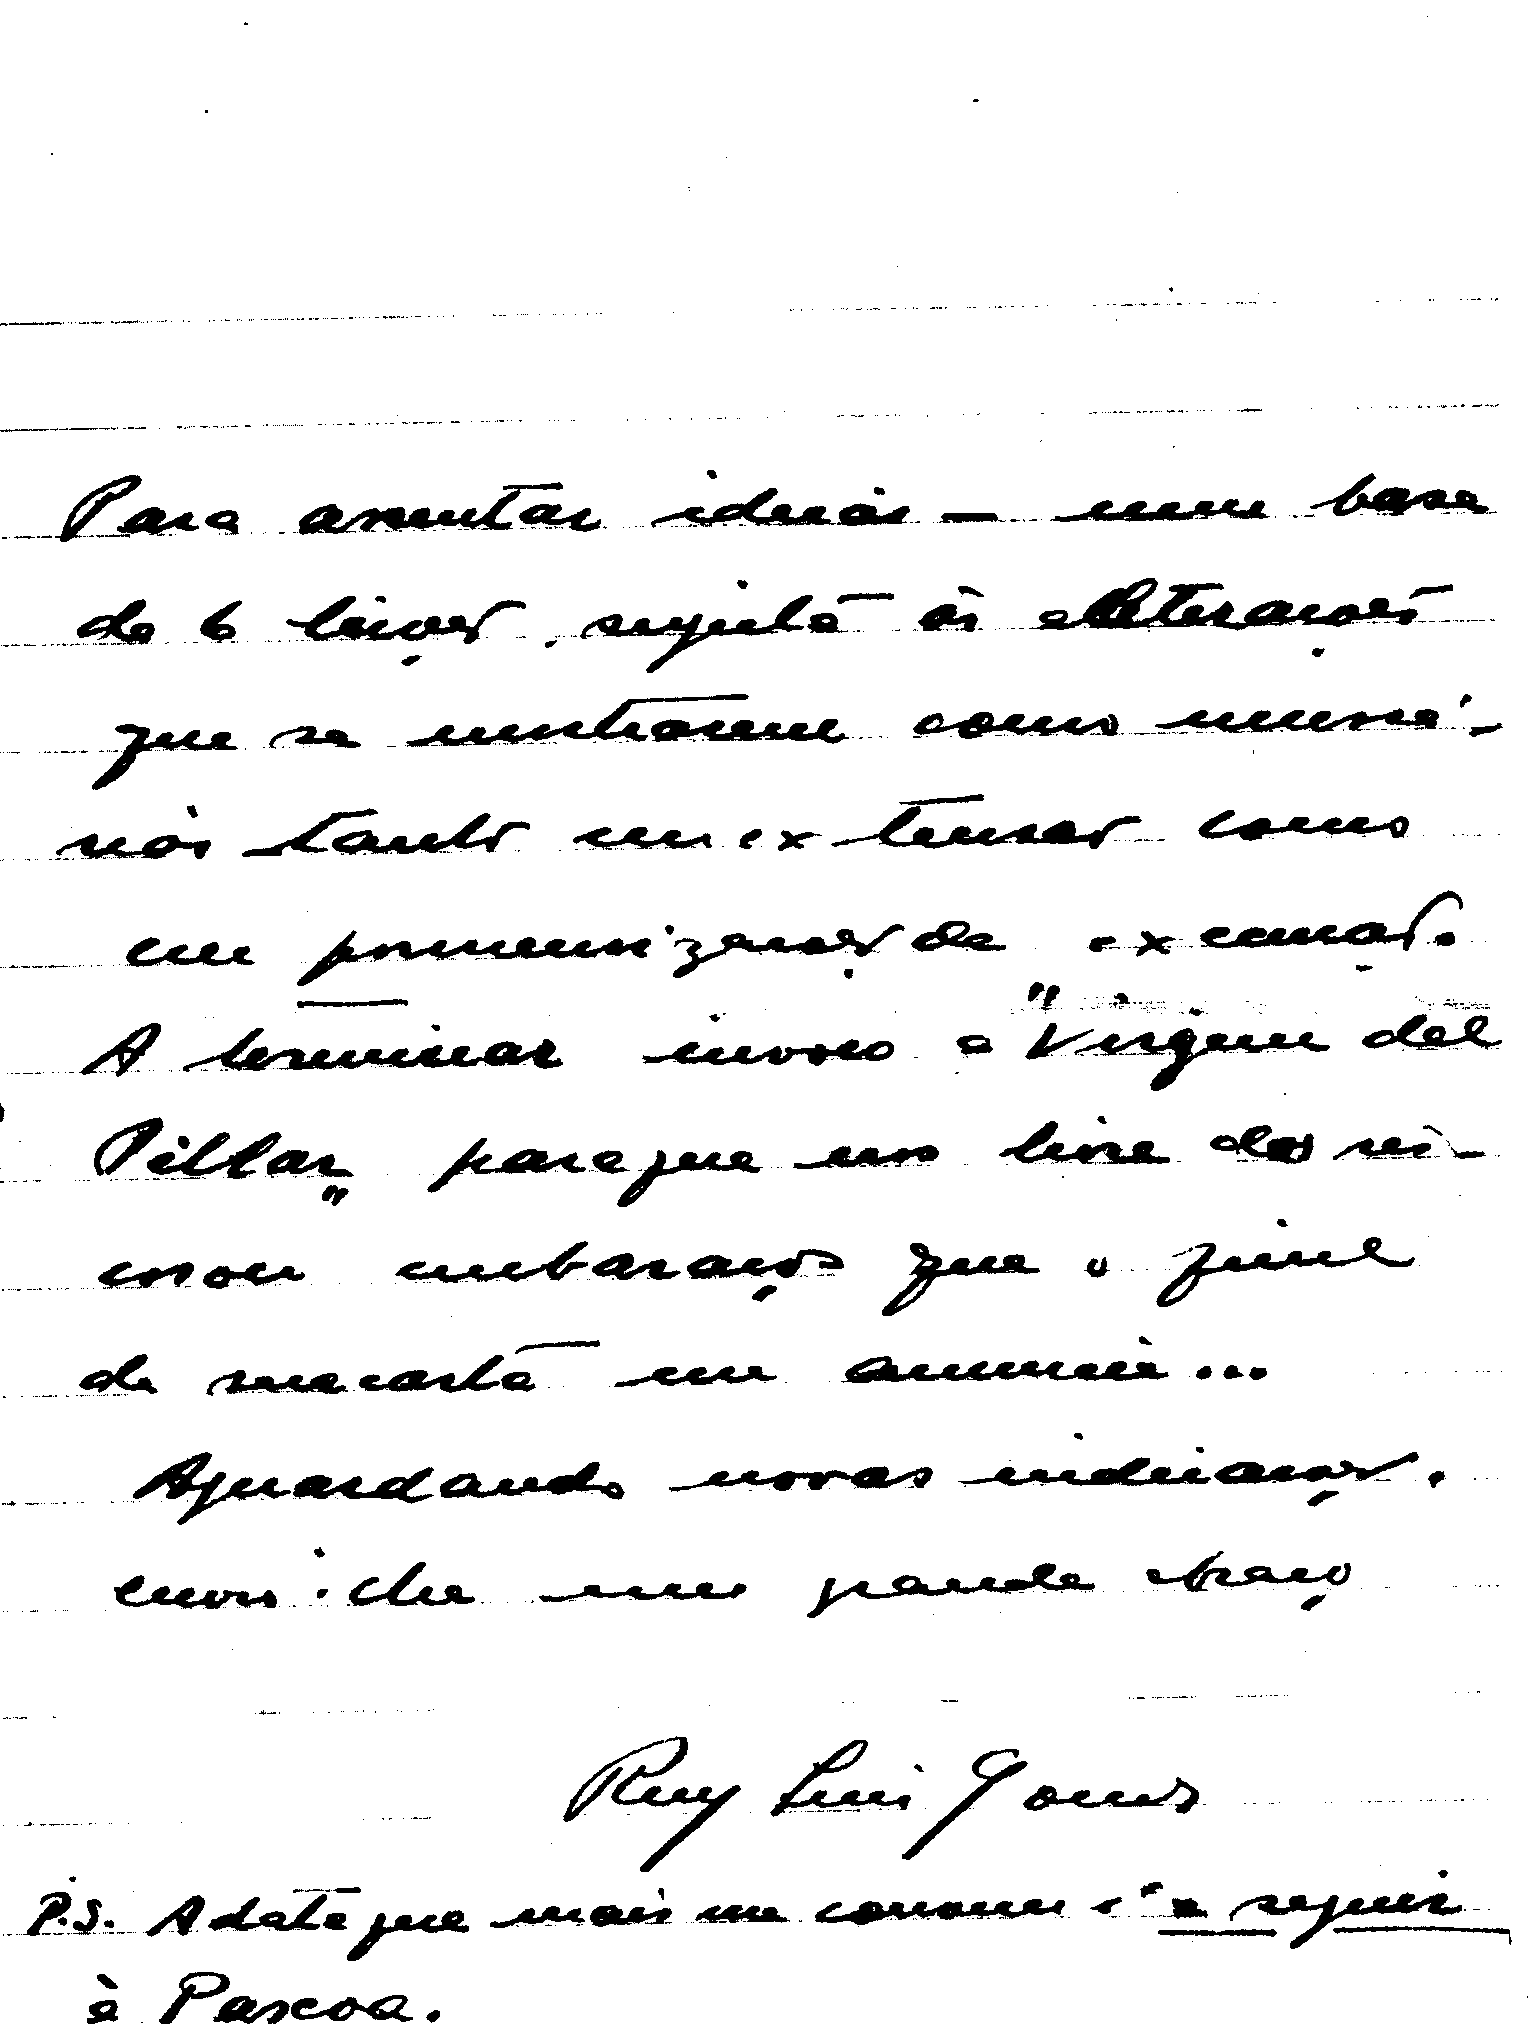 Para assentar ideias — numa base
de 6 lições, sujeita às alterações
que se mostrarem como necessá-
rias tanto em extensão como
em pormenorização de execução.
A terminar invoco a "Virgem del
Pillar" para que nos livre dos
embaraços que o final
de sua carta me anuncia...
Aguardando novas indicações,
envio-lhe um grande abraço
Ruy Luís Gomes
P.S. A data que mais me convém é a seguir
à Pascoa.